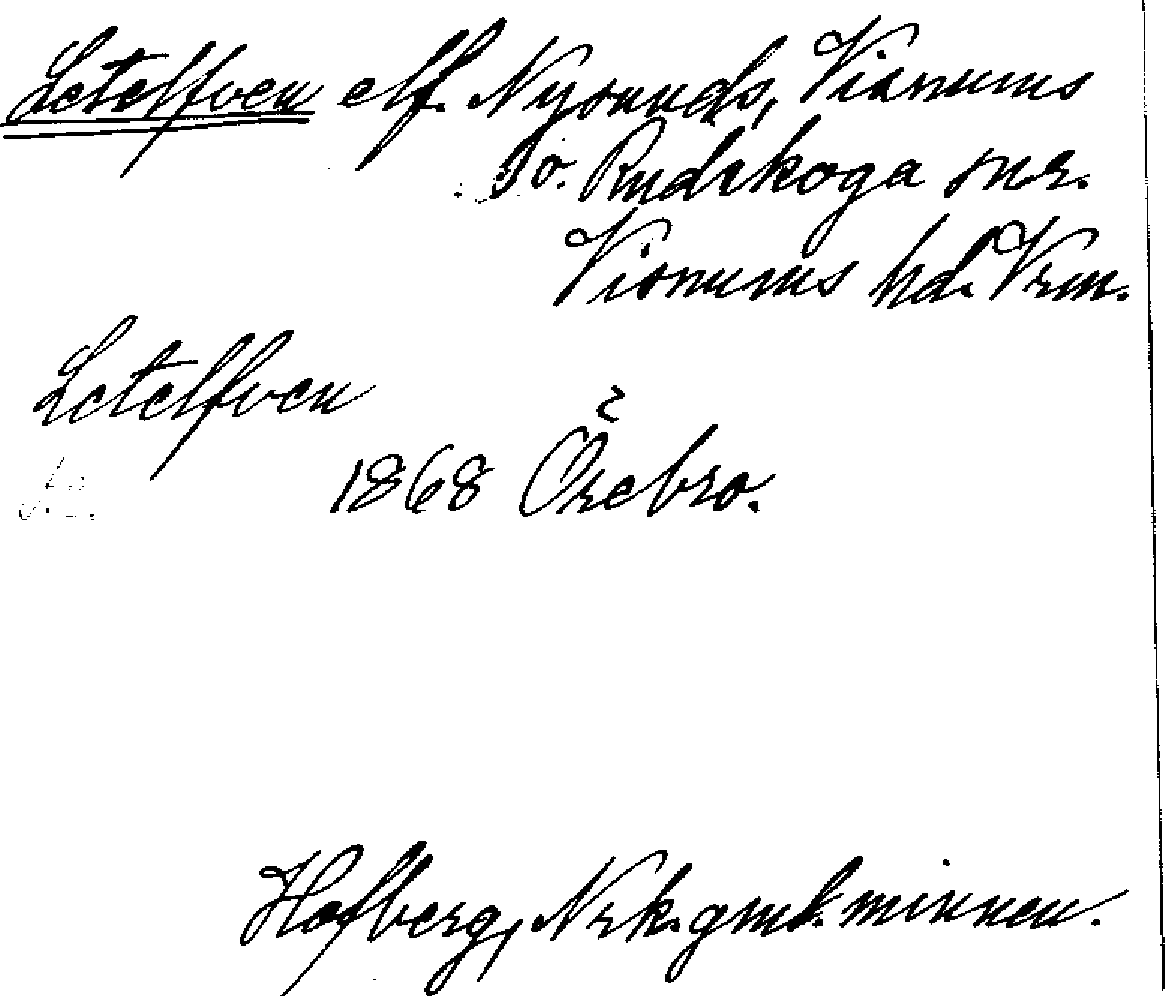 Letelfven elf. Nysunds, Visnums
o. Rudskoga snr.
Visnums hd. Vrm.
Letelfven
1868 Örebro.
Hofberg, Nrk. gml. minnen.